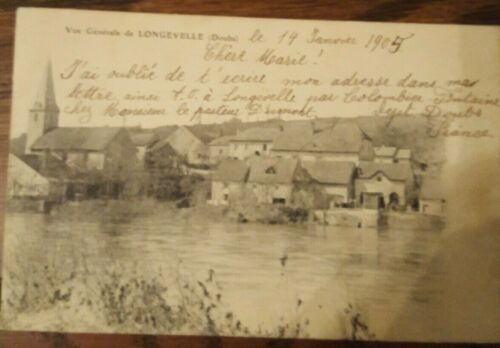 Vue Générale de LONGEVELLE (Doubs) le 14 Janvier 1905
Chère Marie!
J'ai oublié de t'ecrire mon adresse dans ma
lettre, à Longevelle par Colombier Fontaine
chez Monsieur le pasteur Doubs
France